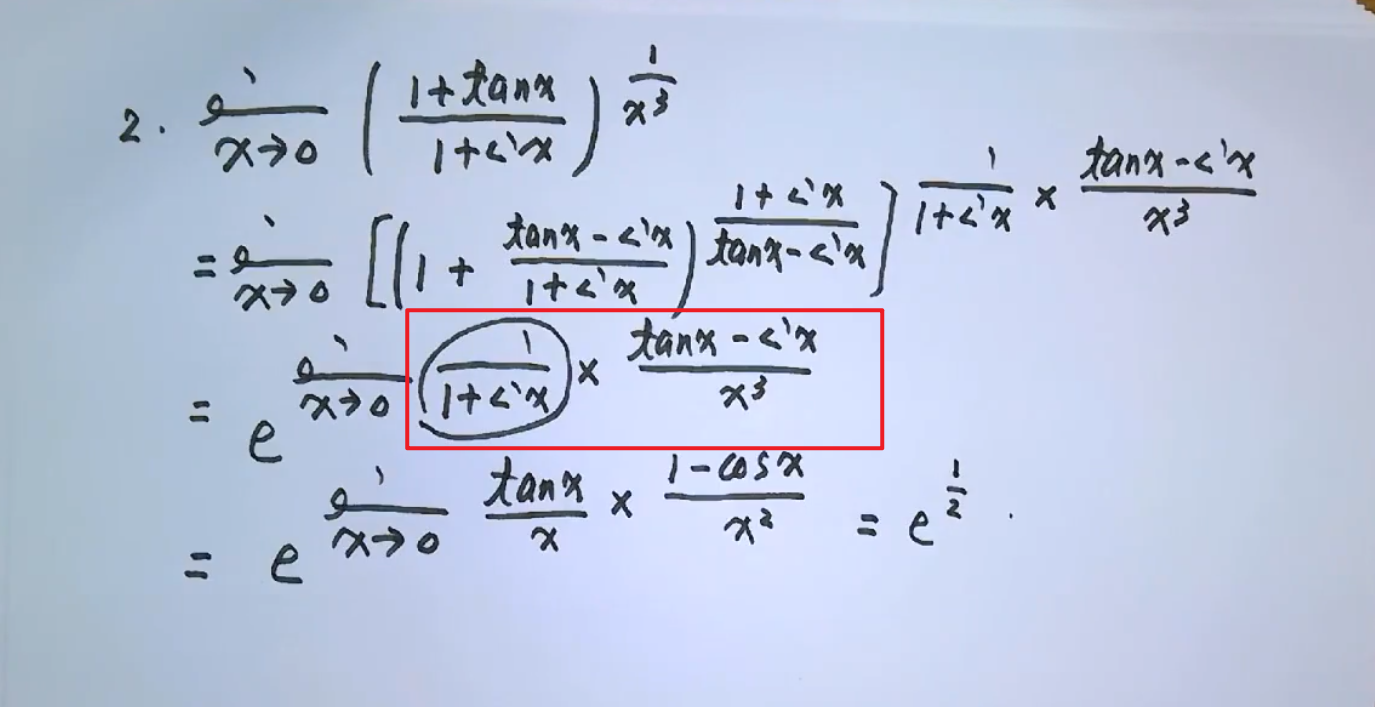 2. lim x→0 ( (1+tanx)/(1+sinx) )^(1/x³)
= lim x→0 [ ( 1 + (tanx-sinx)/(1+sinx) )^((1+sinx)/(tanx-sinx)) ]^( 1/(1+sinx) × (tanx-sinx)/x³ )
= e^( lim x→0 1/(1+sinx) × (tanx-sinx)/x³ )
= e^( lim x→0 tanx/x × (1-cosx)/x² ) = e^(1/2) .